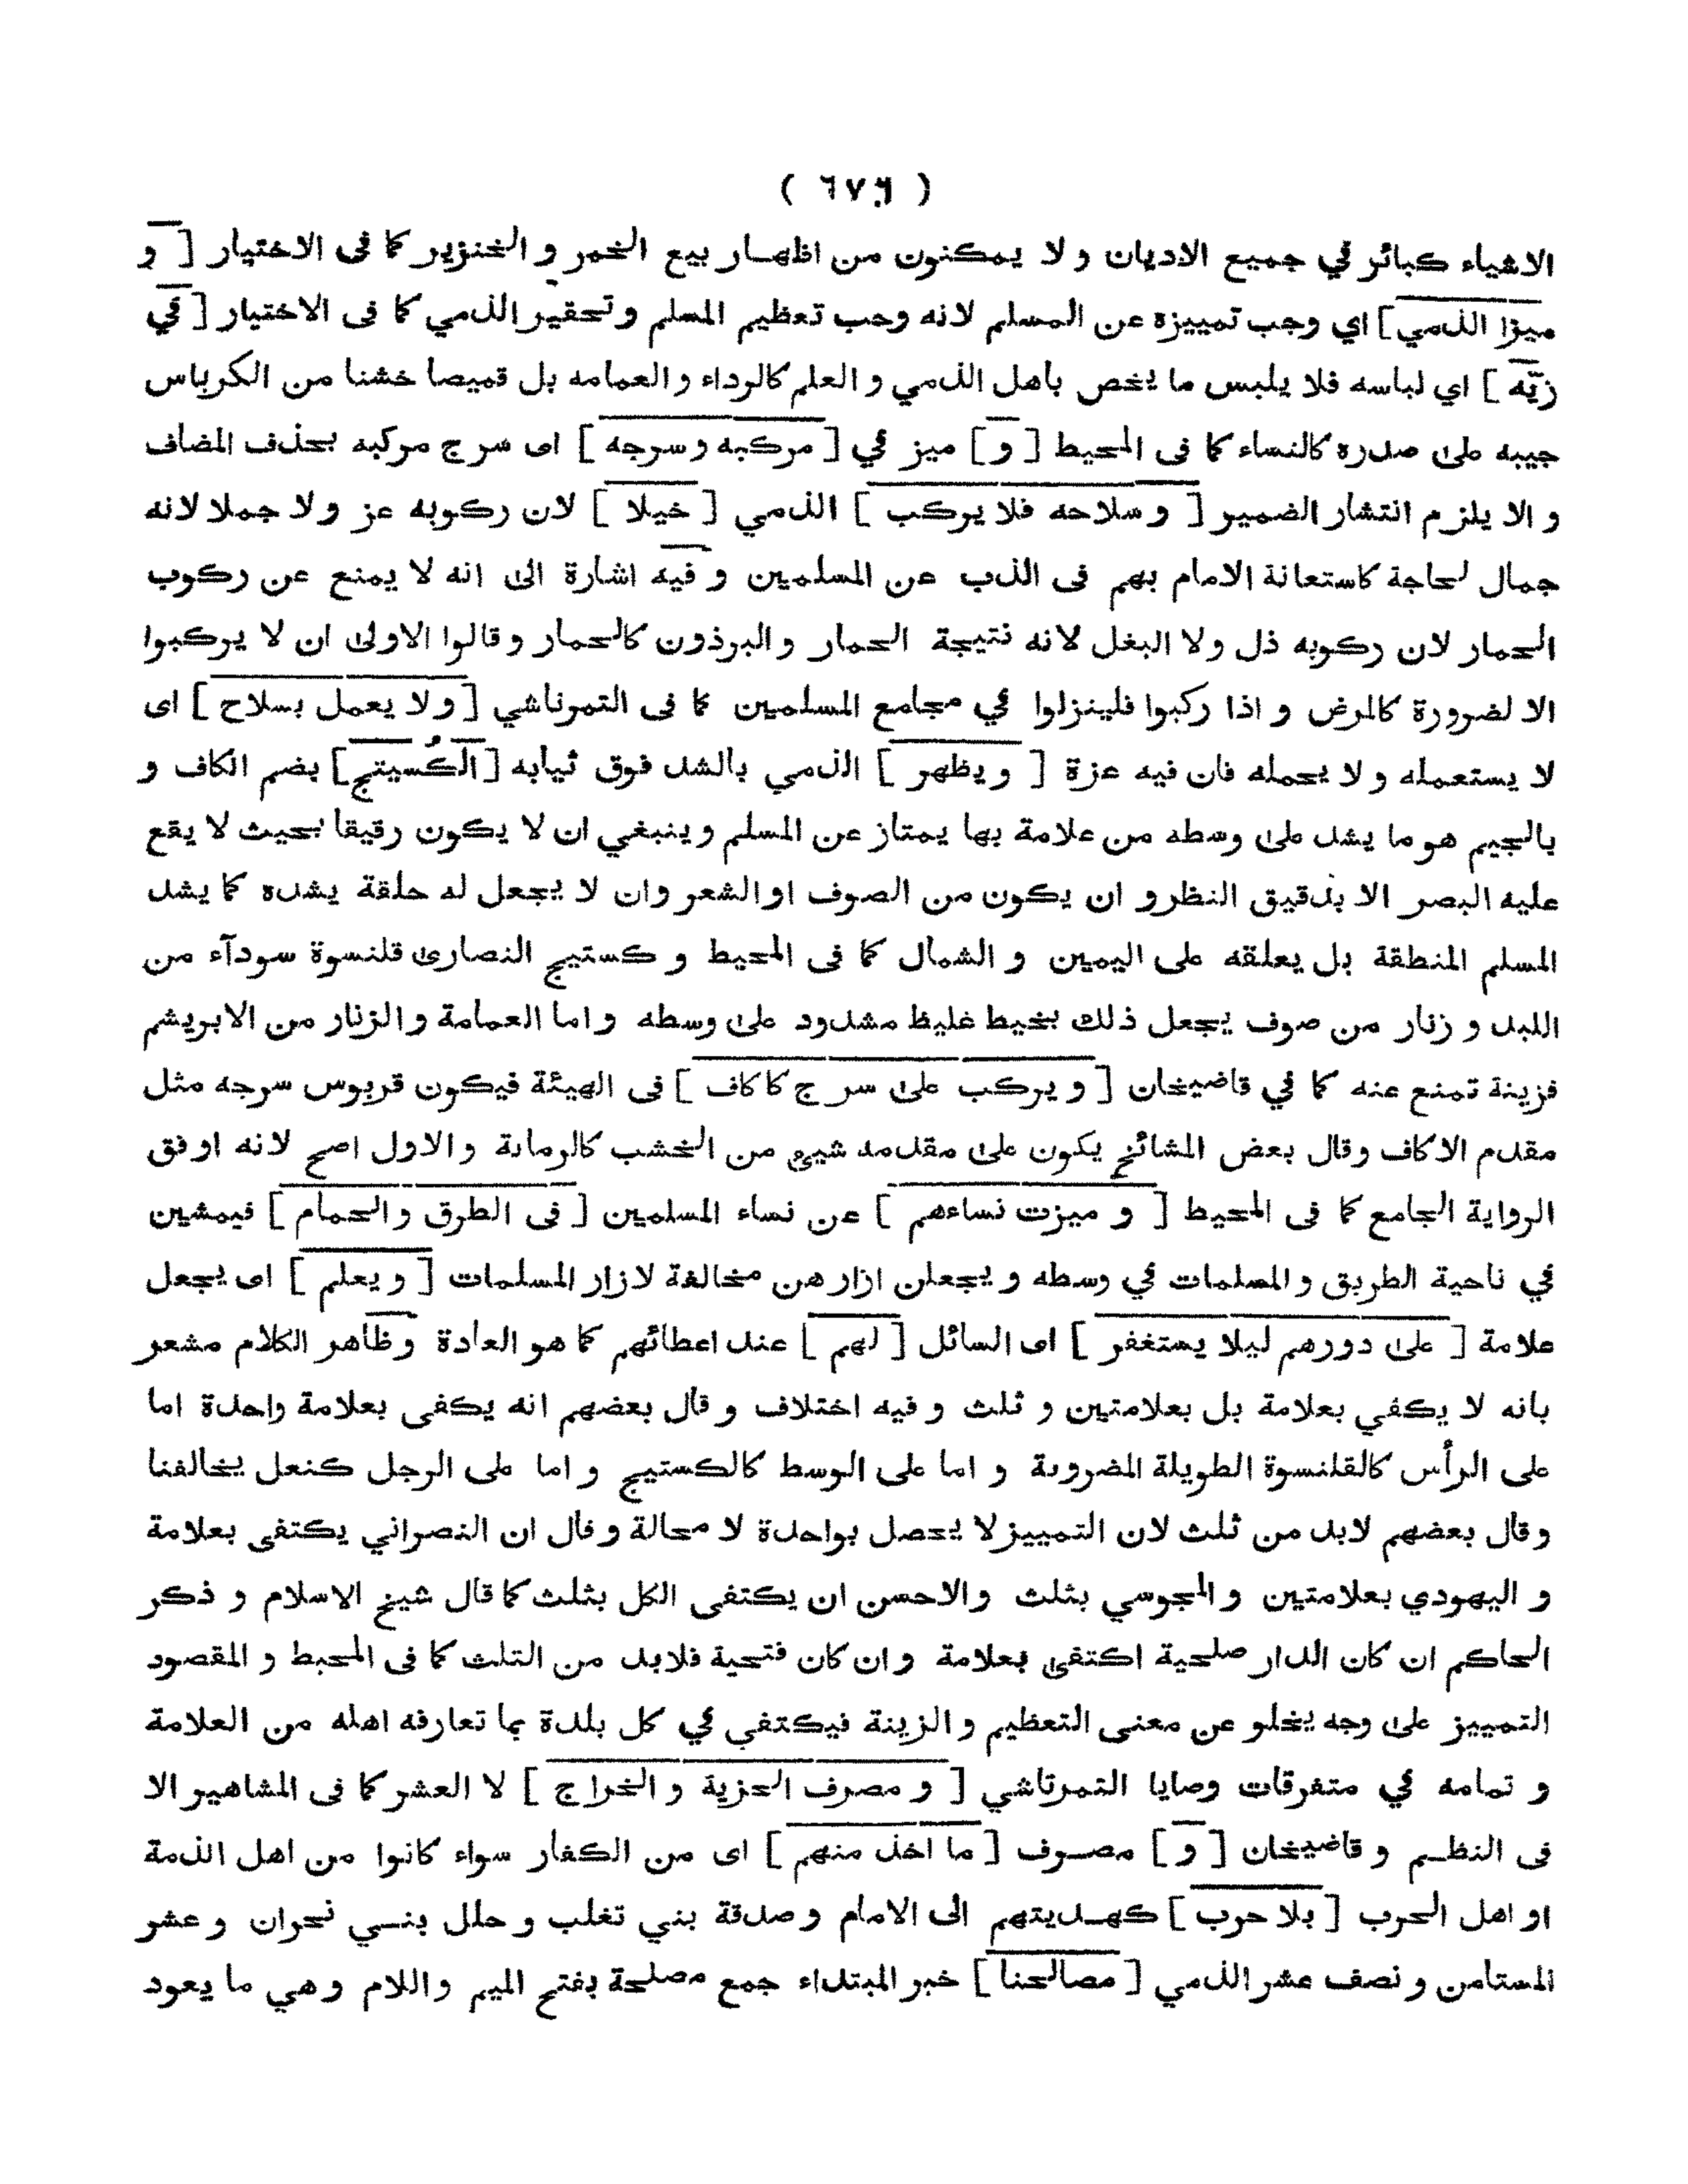 ( ٦٧٦ )
الاشياء كبائر في جميع الاديان و لا يمكنون من اظهار بيع الخمر و الخنزير كما فى الاختيار [ و
ميزا الذمي ] اي وجب تمييزه عن المسلم لانه وجب تعظيم المسلم و تحقير الذمي كما فى الاختيار [ في
زيّه ] اي لباسه فلا يلبس ما يخص باهل الذمي و العلم كالرداء و العمامه بل قميصا خشنا من الكرباس
جيبه على صدره كالنساء كما فى المحيط [ و ] ميز في [ مركبه و سرجه ] اى سرج مركبه بحذف المضاف
و الا يلزم انتشار الضمير [ و سلاحه فلا يركب ] الذمي [ خيلا ] لان ركوبه عز و لا جملا لانه
جمال لحاجة كاستعانة الامام بهم فى الذب عن المسلمين و فيه اشارة الى انه لا يمنع عن ركوب
الحمار لان ركوبه ذل و لا البغل لانه نتيجة الحمار و البرذون كالحمار و قالوا الاولى ان لا يركبوا
الا لضرورة كالمرض و اذا ركبوا فلينزلوا في مجامع المسلمين كما فى التمرتاشي [ و لا يعمل بسلاح ] اى
لا يستعمله و لا يحمله فان فيه عزة [ و يظهر ] الذمي بالشد فوق ثيابه [ الكُسيتج ] بضم الكاف و
بالجيم هو ما يشد على وسطه من علامة بها يمتاز عن المسلم و ينبغي ان لا يكون رقيقا بحيث لا يقع
عليه البصر الا بدقيق النظر و ان يكون من الصوف او الشعر و ان لا يجعل له حلقة يشده كما يشد
المسلم المنطقة بل يعلقه على اليمين و الشمال كما فى المحيط و كستيج النصارى قلنسوة سودآء من
اللبد و زنار من صوف يجعل ذلك بخيط غليظ مشدود على وسطه و اما العمامة و الزنار من الابريشم
فزينة تمنع عنه كما في قاضيخان [ و يركب على سرج كاكاف ] فى الهيئة فيكون قربوس سرجه مثل
مقدم الاكاف و قال بعض المشائخ يكون على مقدمه شيئ من الخشب كالرمانة و الاول اصح لانه اوفق
الرواية الجامع كما فى المحيط [ و ميزت نساءهم ] عن نساء المسلمين [ فى الطرق و الحمام ] فيمشين
في ناحية الطريق و المسلمات في وسطه و يجعلن ازارهن مخالفة لازار المسلمات [ و يعلم ] اى يجعل
علامة [ على دورهم ليلا يستغفر ] اى السائل [ لهم ] عند اعطائهم كما هو العادة و ظاهر الكلام مشعر
بانه لا يكفي بعلامة بل بعلامتين و ثلث و فيه اختلاف و قال بعضهم انه يكفى بعلامة واحدة اما
على الرأس كالقلنسوة الطويلة المضروبة و اما على الوسط كالكستيج و اما على الرجل كنعل يخالفنا
و قال بعضهم لابد من ثلث لان التمييز لا يحصل بواحدة لا محالة و قال ان النصراني يكتفى بعلامة
و اليهودي بعلامتين و المجوسي بثلث و الاحسن ان يكتفى الكل بثلث كما قال شيخ الاسلام و ذكر
الحاكم ان كان الدار صلحية اكتفى بعلامة و ان كان فتحية فلابد من الثلث كما فى المحيط و المقصود
التمييز على وجه يخلو عن معنى التعظيم و الزينة فيكتفى في كل بلدة بما تعارفه اهله من العلامة
و تمامه في متفرقات وصايا التمرتاشي [ و مصرف الجزية و الخراج ] لا العشر كما فى المشاهير الا
فى النظم و قاضيخان [ و ] مصرف [ ما اخذ منهم ] اى من الكفار سواء كانوا من اهل الذمة
او اهل الحرب [ بلا حرب ] كهديتهم الى الامام و صدقة بني تغلب و حلل بنسي نجران و عشر
المستامن و نصف عشر الذمي [ مصالحنا ] خبر المبتداء جمع مصلحة بفتح الميم و اللام و هي ما يعود